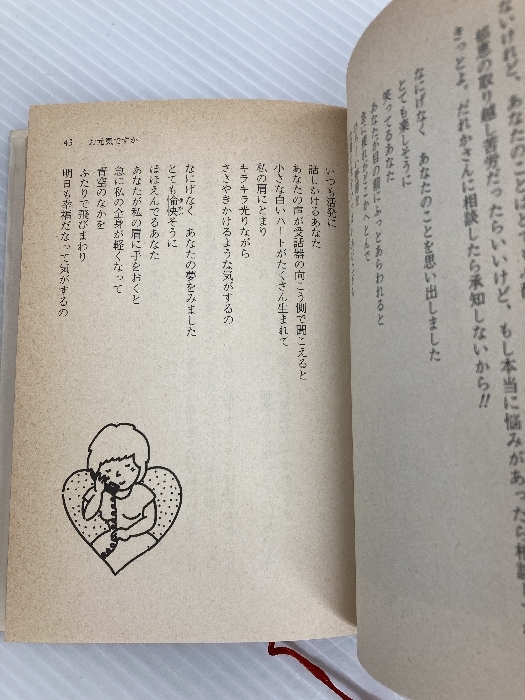 ないけれど、あなたの
郁恵の取り越し苦労だったらいいけど、もし本当に悩みがあったら
きっとよ。だれかさんに相談したら承知しないから!!
なにげなく あなたのことを思い出しました
とても楽しそうに
笑ってるあなた
あなたが目の前にふっとあらわれると
43 お元気ですか
いつも活発に
話しかけるあなた
あなたの声が受話器の向こう側で聞こえると
小さな白いハートがたくさん生まれて
私の肩にとまり
キラキラ光りながら
ささやきかけるような気がするの
なにげなく あなたの夢をみました
とても愉快そうに
ほほえんでるあなた
あなたが私の肩に手をおくと
急に私の全身が軽くなって
青空のなかを
ふたりで飛びまわり
明日も幸福だなって気がするの